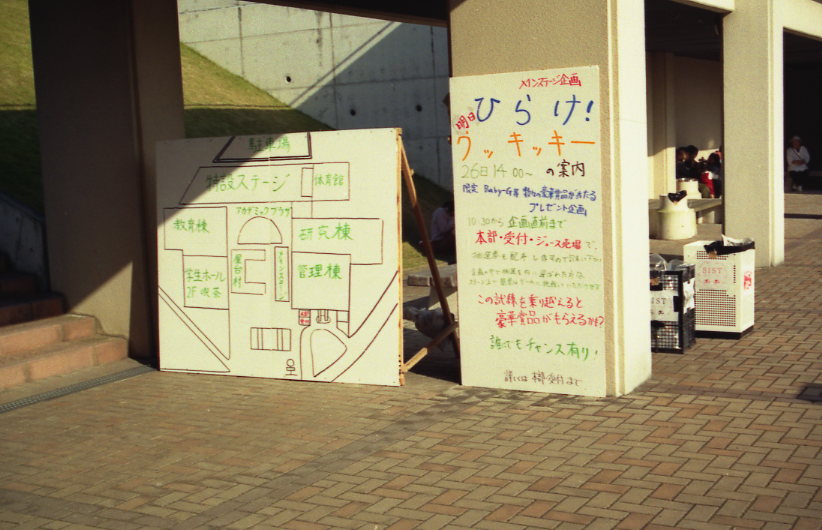 駐車場
特設ステージ
体育館
アカデミックプラザ
教育棟
研究棟
学生ホール
2F 喫茶
屋台村
メインステージ
管理棟
メインステージ企画
明日
ひらけ!
グッキッキー
26日 14:00~ の案内
限定 Baby-G等 数々の豪華賞品が当たる
プレゼント企画
10:30から 企画直前まで
本部・受付・ジュース売場 で、
この試練を乗り越えると
豪華賞品がもらえるかも?
誰でもチャンス有り!
詳しくは 本部・受付 まで
SIST
SIST